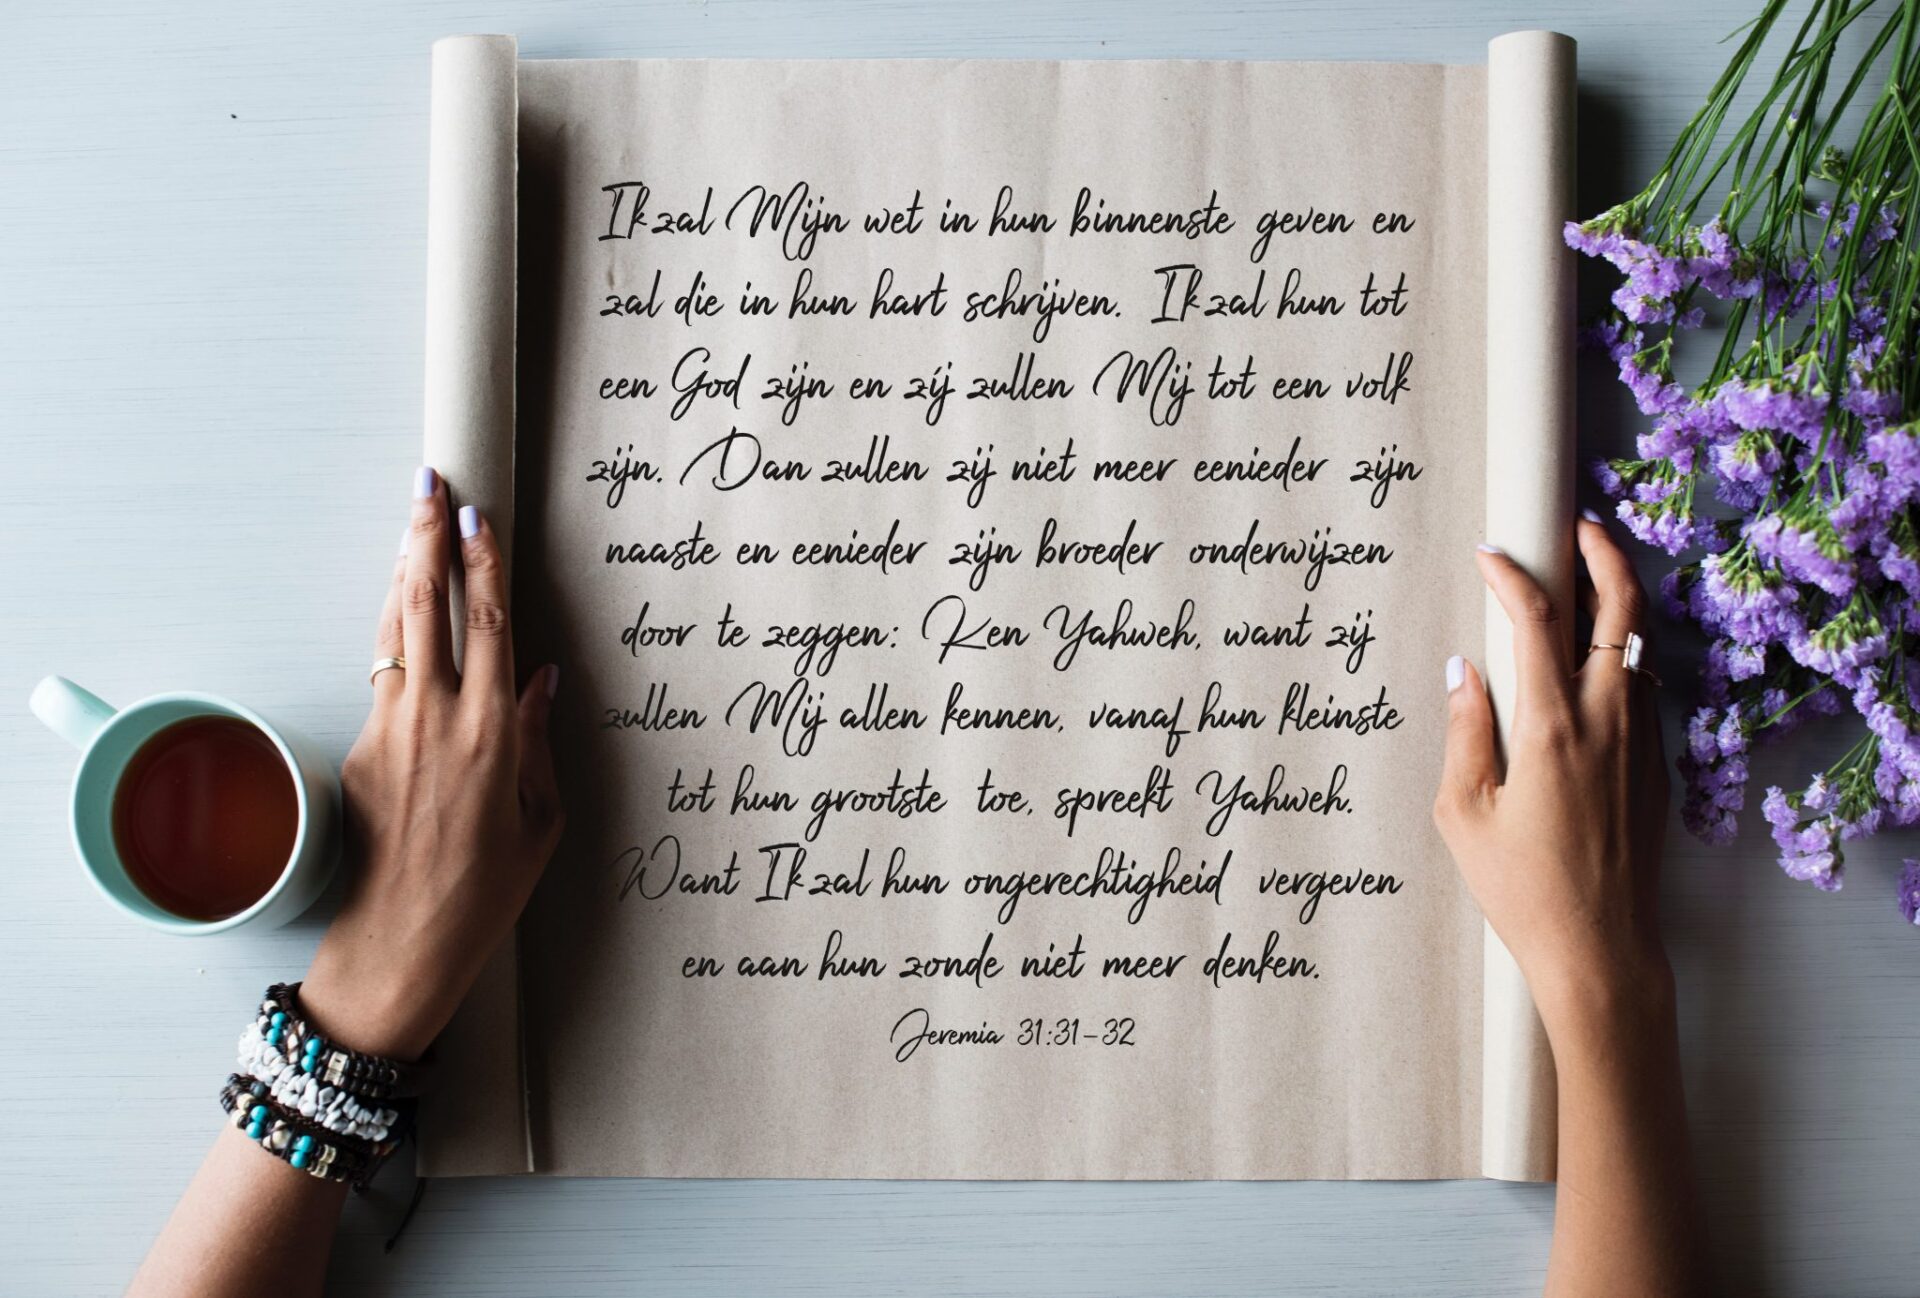 Ik zal Mijn wet in hun binnenste geven en
zal die in hun hart schrijven. Ik zal hun tot
een God zijn en zíj zullen Mij tot een volk
zijn. Dan zullen zij niet meer eenieder zijn
naaste en eenieder zijn broeder onderwijzen
door te zeggen: Ken Yahweh, want zij
zullen Mij allen kennen, vanaf hun kleinste
tot hun grootste toe, spreekt Yahweh.
Want Ik zal hun ongerechtigheid vergeven
en aan hun zonde niet meer denken.
Jeremia 31:31-32